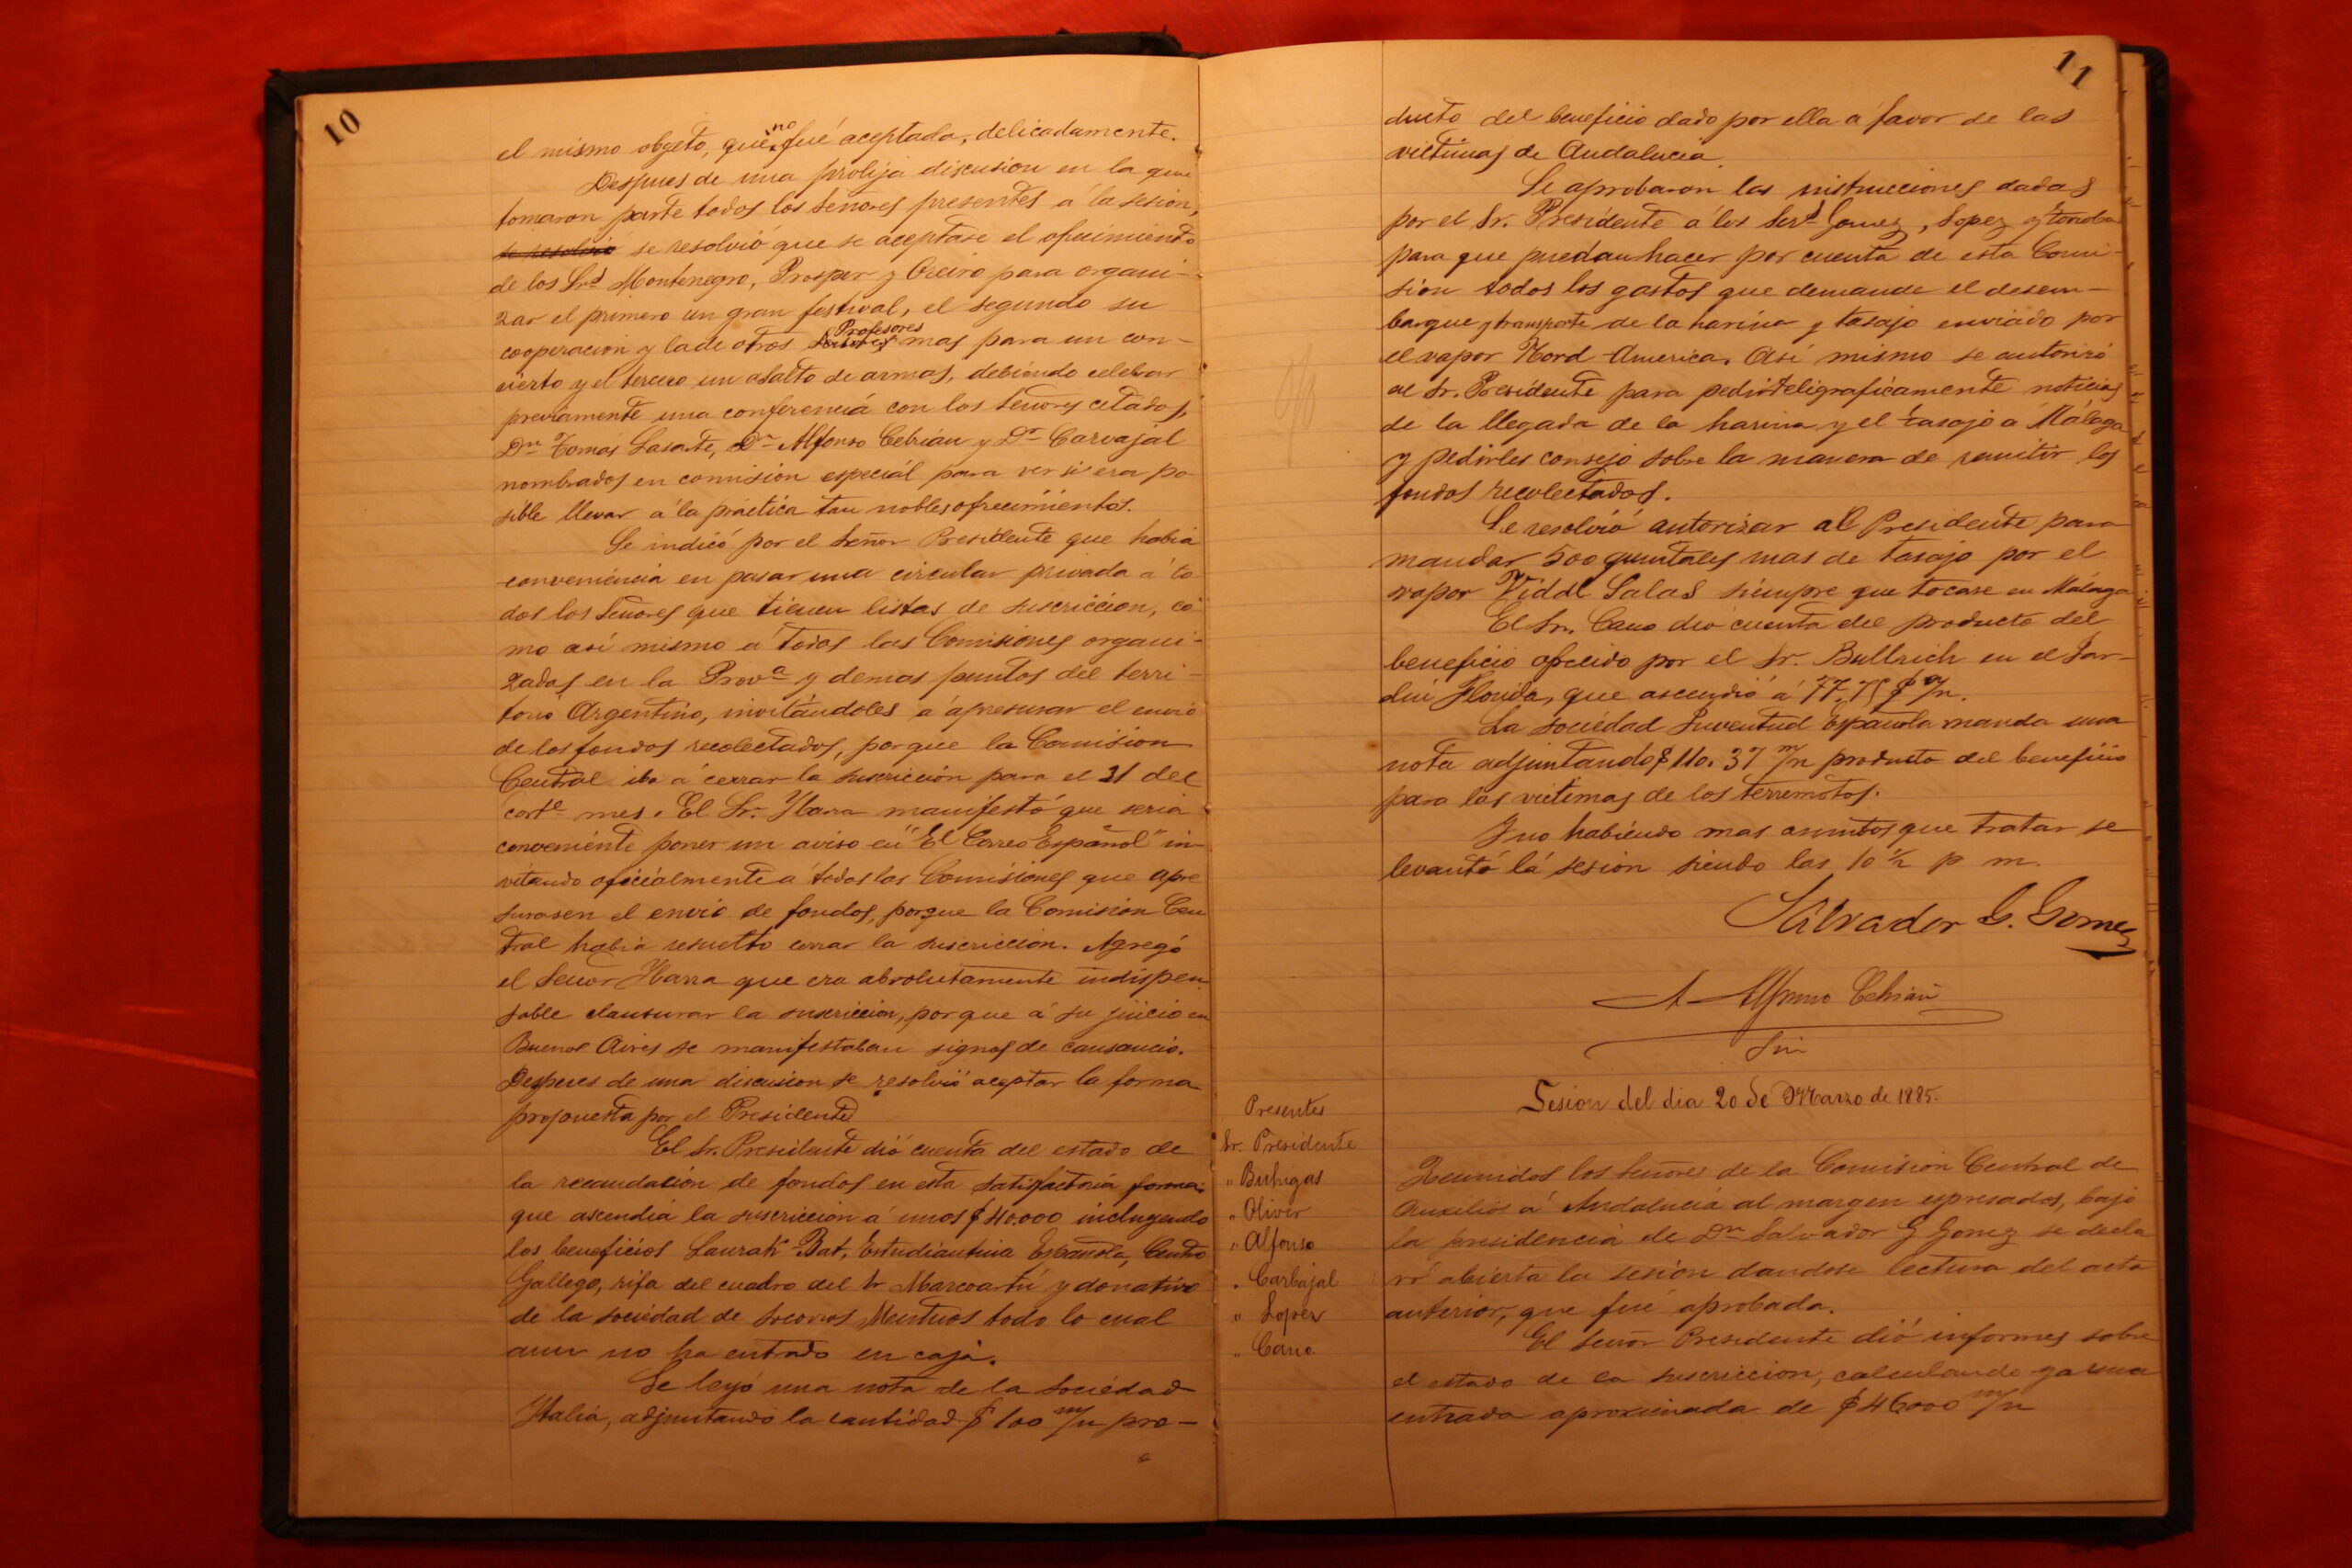 10
el mismo objeto, que no fué aceptada, delicadamente.
Despues de una prolija discusion en la que
tomaron parte todos los señores presentes á la sesion,
se resolvió se resolvió que se aceptase el ofrecimiento
de los Srs Montenegro, Prosper y Oreiro para organi-
zar el primero un gran festival, el segundo su
cooperacion y la de otros Profesores mas para un con-
cierto y el tercero un asalto de armas, debiendo celebrar
previamente una conferencia con los señores citados,
Dn Tomás Lasarte, Dn Alfonso Cebrián y Dr Carvajal
nombrados en comisión especial para ver si era po
sible llevar á la práctica tan nobles ofrecimientos.
Se indicó por el Señor Presidente que habia
conveniencia en pasar una circular privada á to
dos los Señores que tienen listas de suscricción, co
mo así mismo á todas las Comisiones organi-
zadas en la Prova y demas puntos del terri-
torio Argentino, invitándoles á apresurar el envio
de los fondos recolectados, porque la Comision
Central iba á cerrar la suscricción para el 31 del
corte mes. El Sr. Ybarra manifestó que seria
conveniente poner un aviso en "El Correo Español" in-
vitando oficialmente á todas las Comisiones que apre
surasen el envio de fondos, porque la Comision Cen
tral habia resuelto cerrar la suscricción. Agregó
el Señor Ybarra que era absolutamente indispen
sable clausurar la suscricción, porque á su juicio en
Buenos Aires se manifestaban signos de cansancio.
Despues de una discusion se resolvió aceptar la forma
propuesta por el Presidente
El Sr. Presidente dió cuenta del estado de
la recaudación de fondos en esta satisfactoria forma:
que ascendia la suscricción á unos $ 40.000 incluyendo
los beneficios Laurak-Bat, Estudiantina Española, Centro
Gallego, rifa del cuadro del Sr Marcoartú y donativo
de la sociedad de Socorros Mutuos todo lo cual
aun no ha entrado en caja.
Se leyó una nota de la Sociedad
Ytalia, adjuntando la cantidad $ 100 m/n pro-
11
ducto del beneficio dado por ella á favor de las
victimas de Andalucia.
Se aprobaron las instrucciones dadas
por el Sr. Presidente á los Sers Gomez, Lopez y
para que puedan hacer por cuenta de esta Comi-
sion todos los gastos que demande el desem-
barque y transporte de la harina y tasajo enviado por
el vapor Nord-America. Asi mismo se autorizó
al Sr. Presidente para pedir telegraficamente noticias
de la llegada de la harina y el tasajo á Málaga
y pedirles consejo sobre la manera de remitir los
fondos recolectados.
Se resolvió autorizar al Presidente para
mandar 500 quintales mas de tasajo por el
vapor Vidal Salas siempre que tocase en Málaga
El Sr. Cano dió cuenta del producto del
beneficio ofrecido por el Sr. Bullrich en el Jar-
din Florida, que ascendió á 77,75 $ m/n.
La sociedad Juventud Española manda una
nota adjuntando $ 110.37 m/n producto del beneficio
para las victimas de los terremotos.
Y no habiendo mas asuntos que tratar se
levantó la sesion siendo las 10 1/2 p m.
Salvador G. Gomez
A Alfonso Cebrián
Srio
Sesion del dia 20 de Marzo de 1885.
Presentes
Sr. Presidente
" Buhigas
" Oliver
" Alfonso
" Carbajal
" Lopez
" Cano.
Reunidos los Señores de la Comision Central de
Auxilios á Andalucia al margen espresados, bajo
la presidencia de Dn Salvador G Gomez se decla
ró abierta la sesión dandose lectura del acta
anterior, que fué aprobada.
El Señor Presidente dió informes sobre
el estado de la suscriccion, calculando ya una
entrada aproximada de $ 46000 m/n